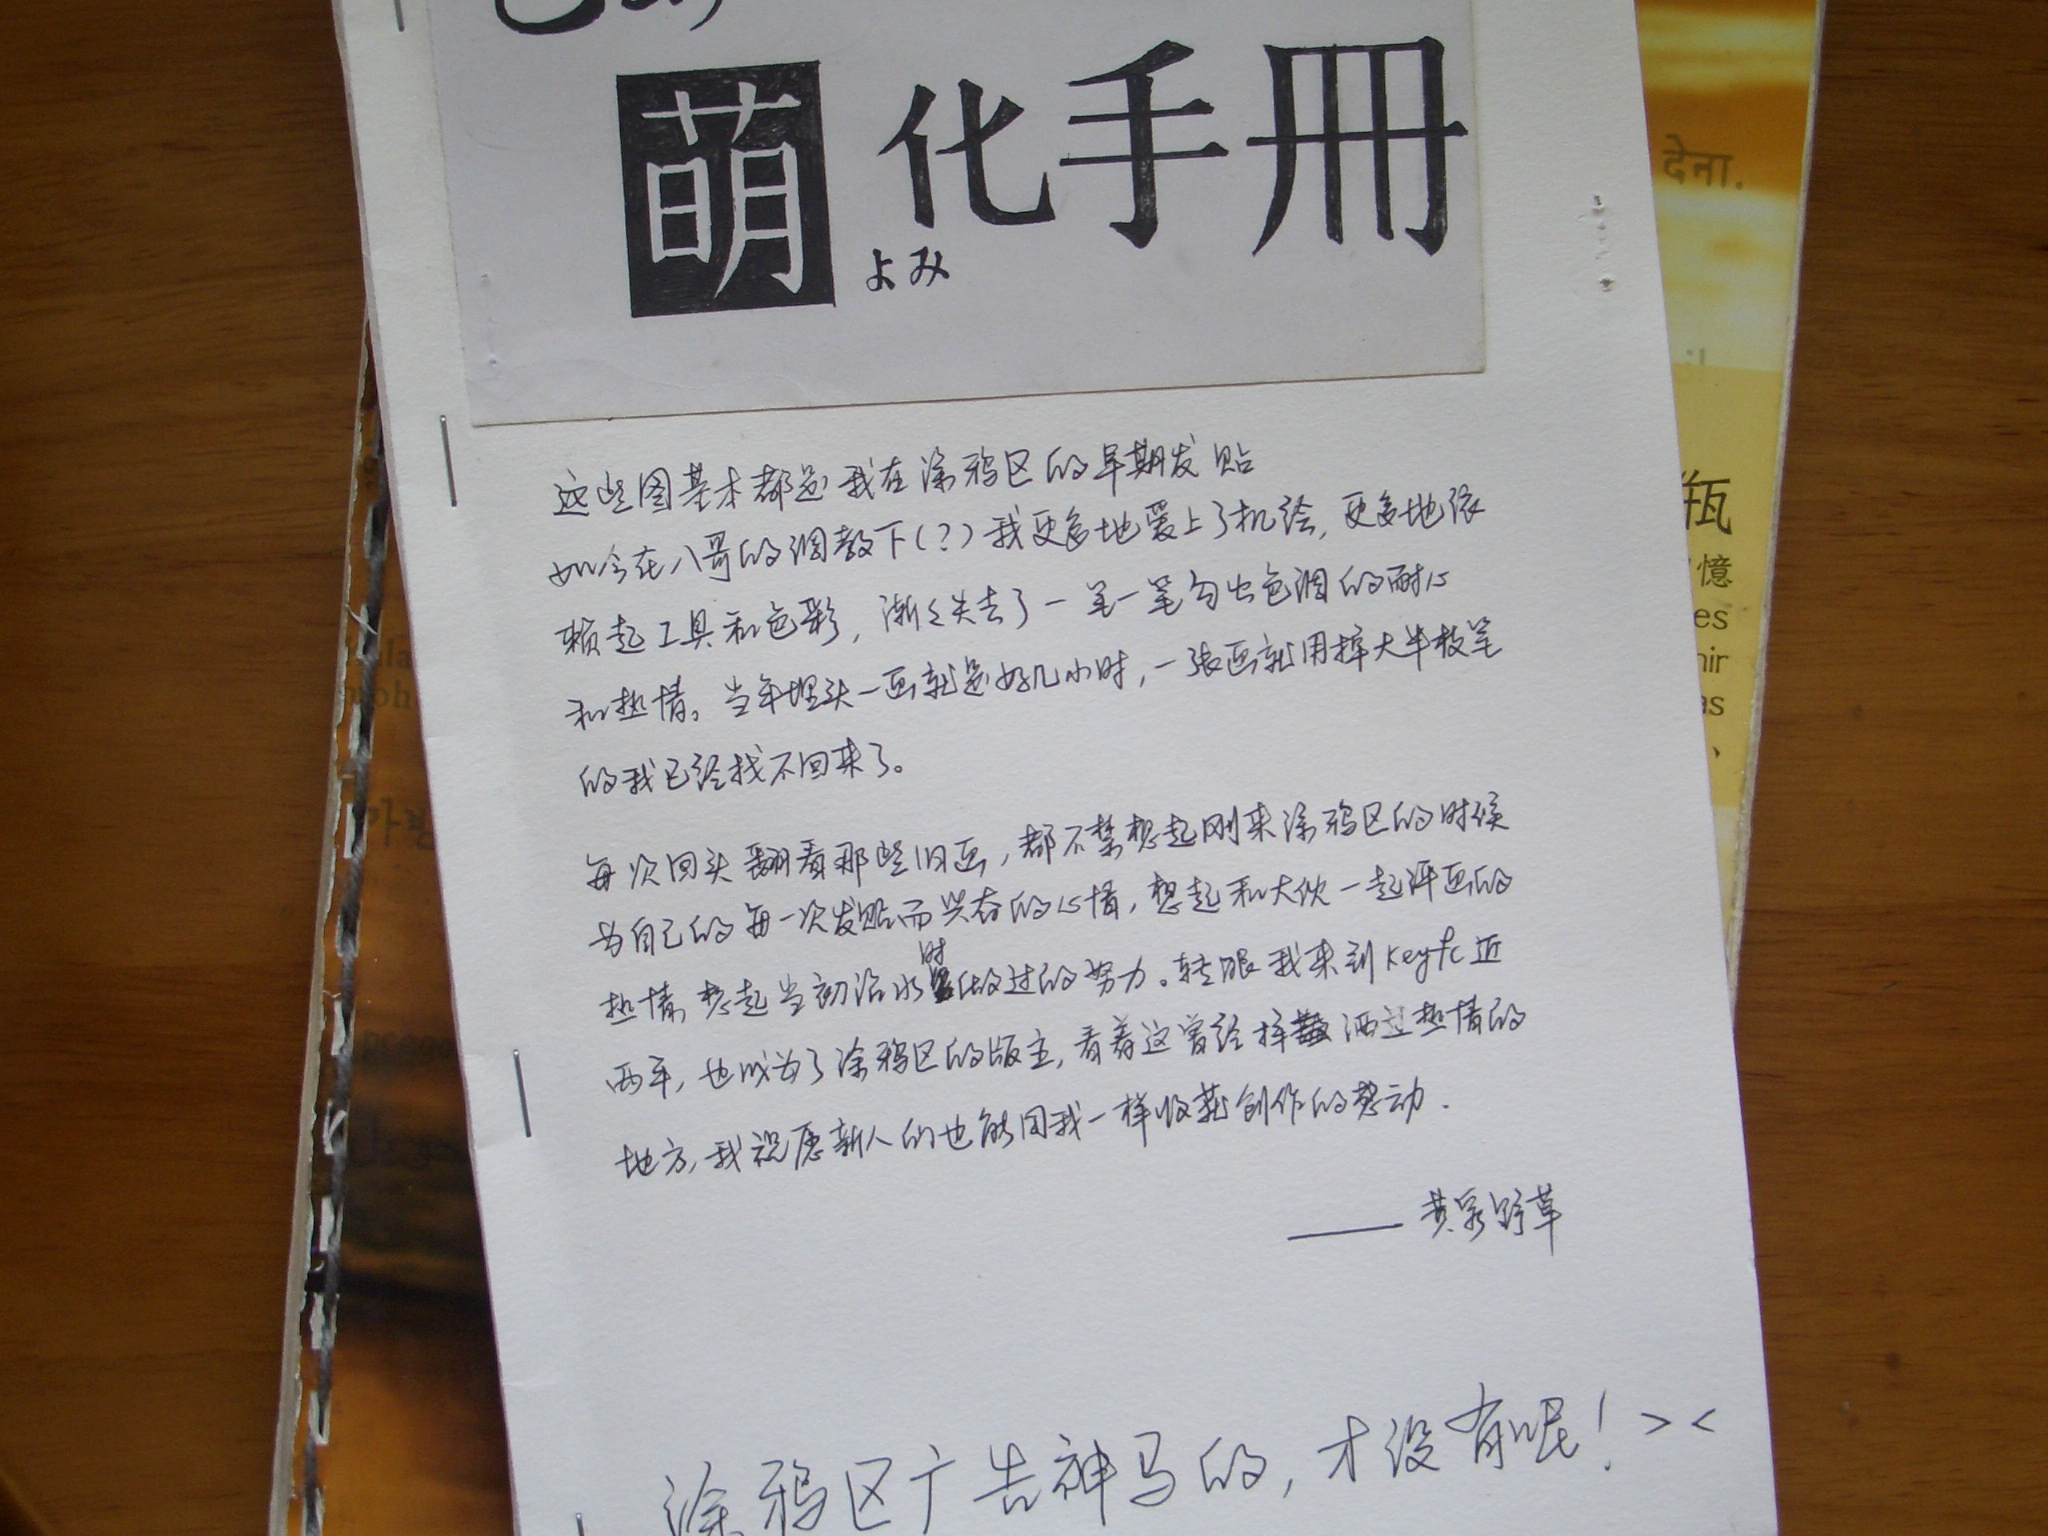 萌化手册
よみ
这些图基本都是我在涂鸦区的早期发贴
如今在八哥的调教下(?)我更多地爱上了机绘,更多地依
赖起工具和色彩,渐渐失去了一笔一笔勾出色调的耐心
和热情。当年埋头一画就是好几小时,一张画就用掉大半枝笔
的我已经找不回来了。
每次回头翻看那些旧画,都不禁想起刚来涂鸦区的时候
为自己的每一次发贴而兴奋的心情,想起和大伙一起评画的
热情,想起当初治水时做过的努力。转眼我来到keyfc近
两年,也成为了涂鸦区的版主,看着这曾经挥洒过热情的
地方,我祝愿新人们也能同我一样收获创作的感动.
——黄泉野草
涂鸦区广告神马的,才没有呢!><
देना.
瓶
憶
es
nir
as